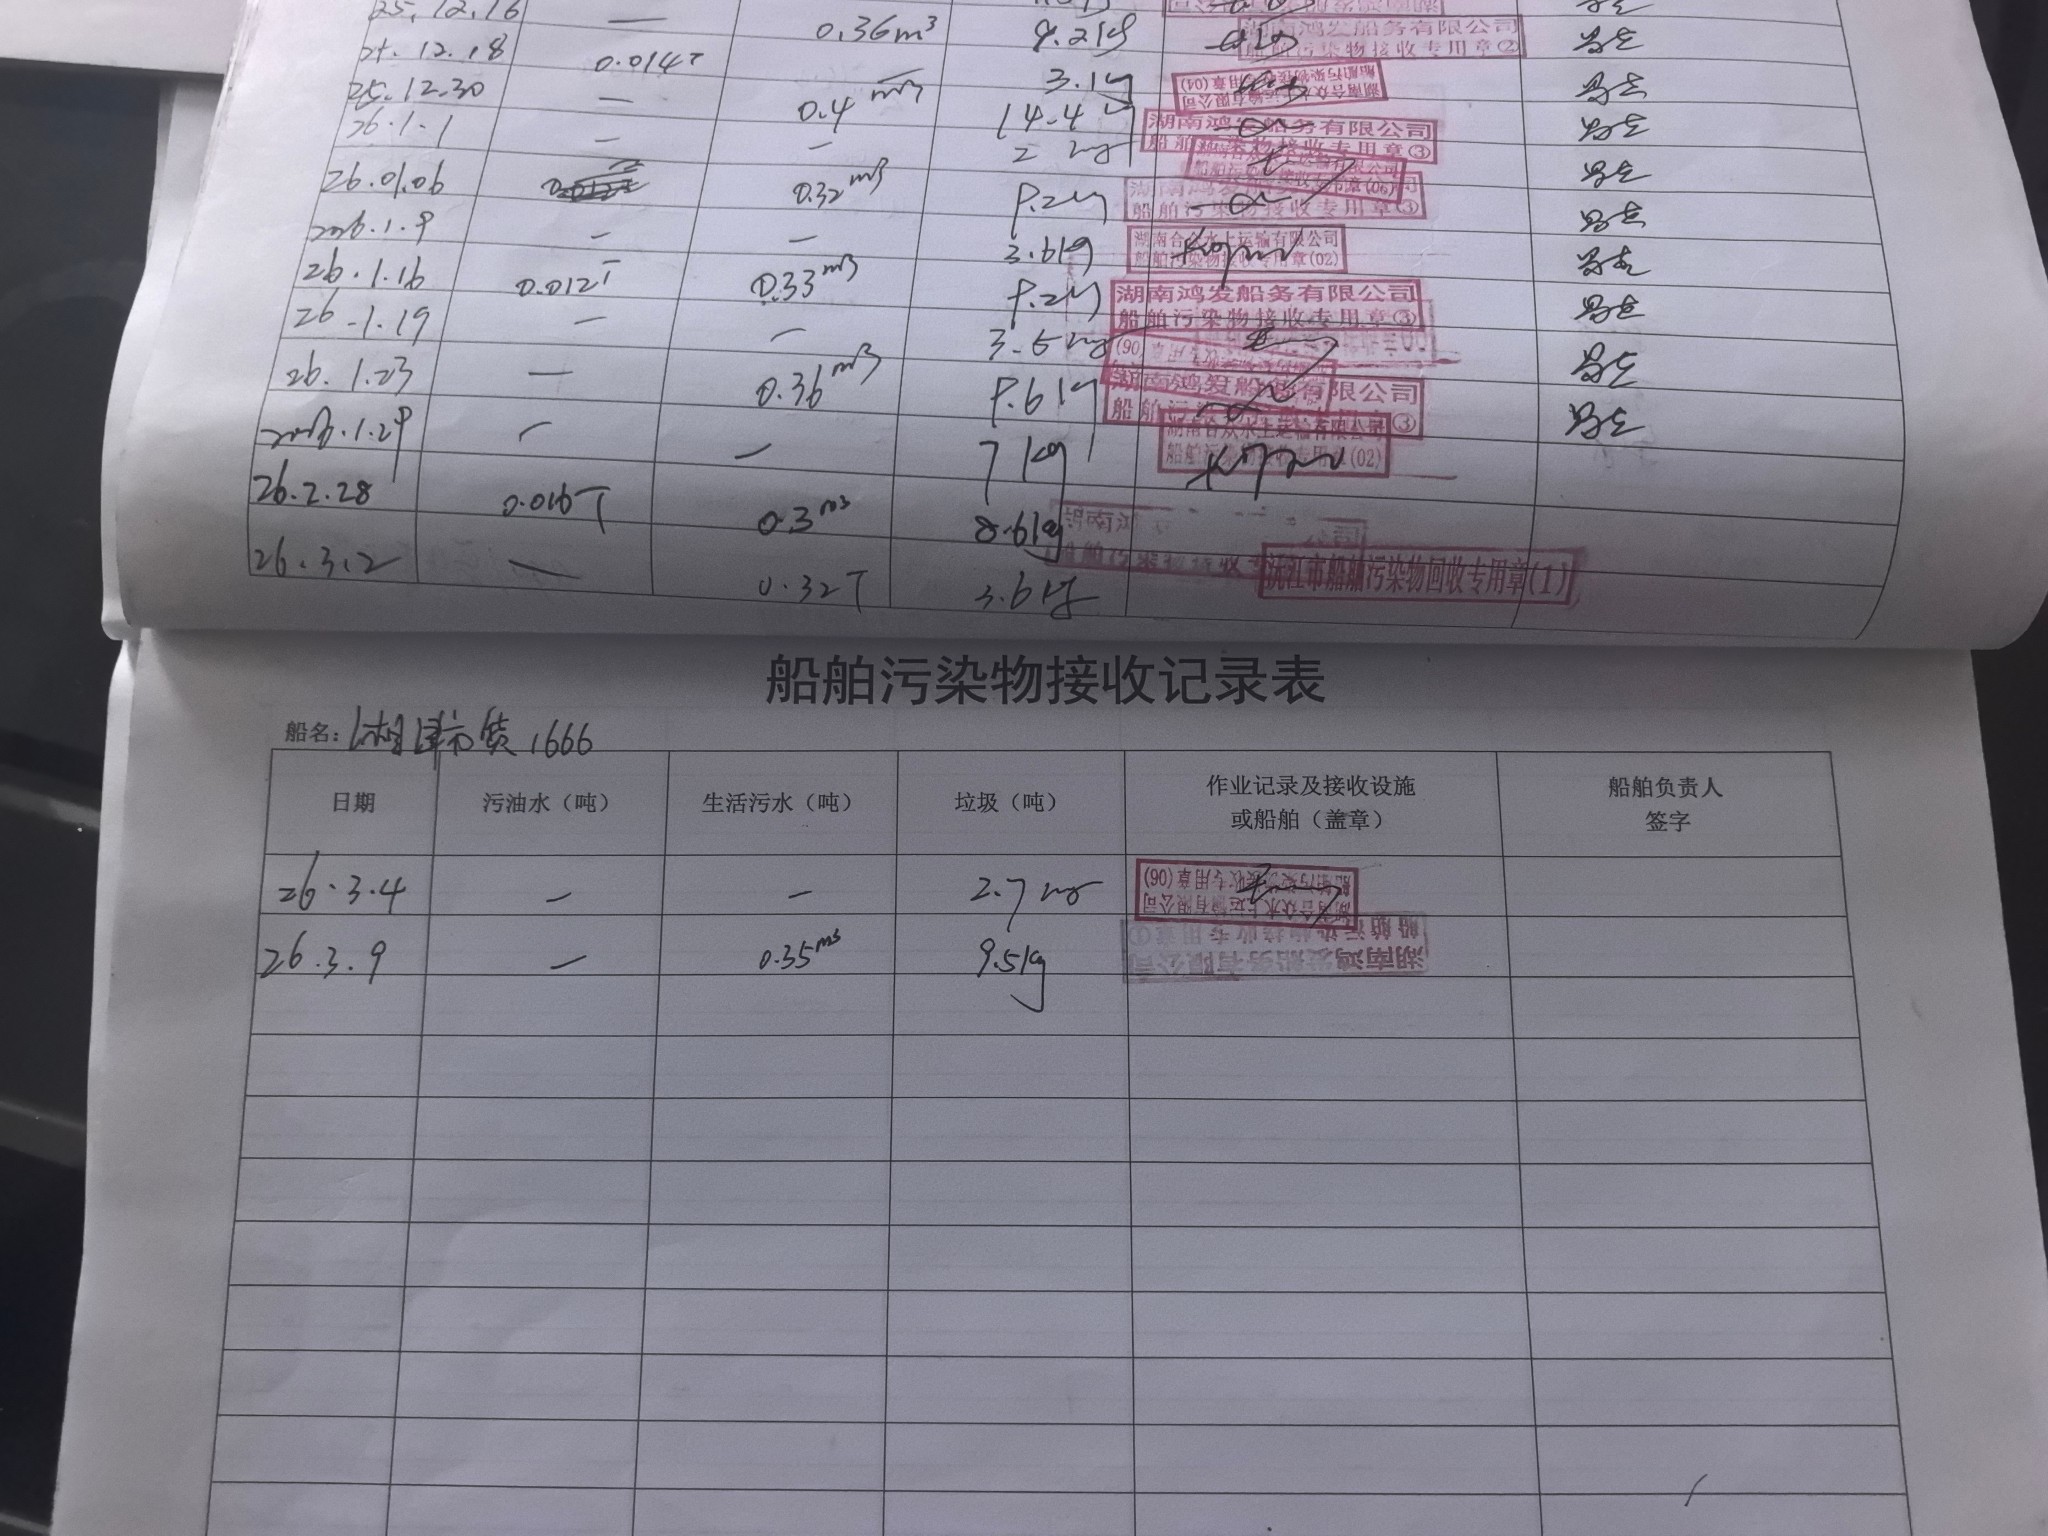 25.12.16 — 0.36m³ 9.2kg
湖南鸿发船务有限公司
船舶污染物接收专用章②
25.12.18 0.014T — 3.1kg
湖南合众水上运输有限公司
船舶污染物接收专用章(04)
25.12.30 — 0.4m³ 14.4kg
湖南鸿发船务有限公司
船舶污染物接收专用章③
26.1.1 — — 2kg
26.01.06 — 0.32m³ 8.2kg
船舶污染物接收专用章③
2026.1.9 — — 3.6kg
湖南合众水上运输有限公司
船舶污染物接收专用章(02)
26.1.16 0.012T 0.33m³ 8.2kg
湖南鸿发船务有限公司
船舶污染物接收专用章③
26.1.19 — — 3.5kg
26.1.23 — 0.36m³ 8.6kg
湖南鸿发船务有限公司
船舶污染物接收专用章③
2026.1.29 — — 7kg
湖南合众水上运输有限公司
船舶污染物接收专用章(02)
26.2.28 0.016T 0.3m³ 8.6kg
26.3.2 — 0.32T 3.6kg
沅江市船舶污染物回收专用章(1)
船舶污染物接收记录表
船名：湘津市货1666
日期 污油水（吨） 生活污水（吨） 垃圾（吨） 作业记录及接收设施 船舶负责人
或船舶（盖章） 签字
26.3.4 — — 2.7kg
湖南合众水上运输有限公司
船舶污染物接收专用章(06)
26.3.9 — 0.35m³ 9.5kg
湖南鸿发船务有限公司
船舶污染物接收专用章①